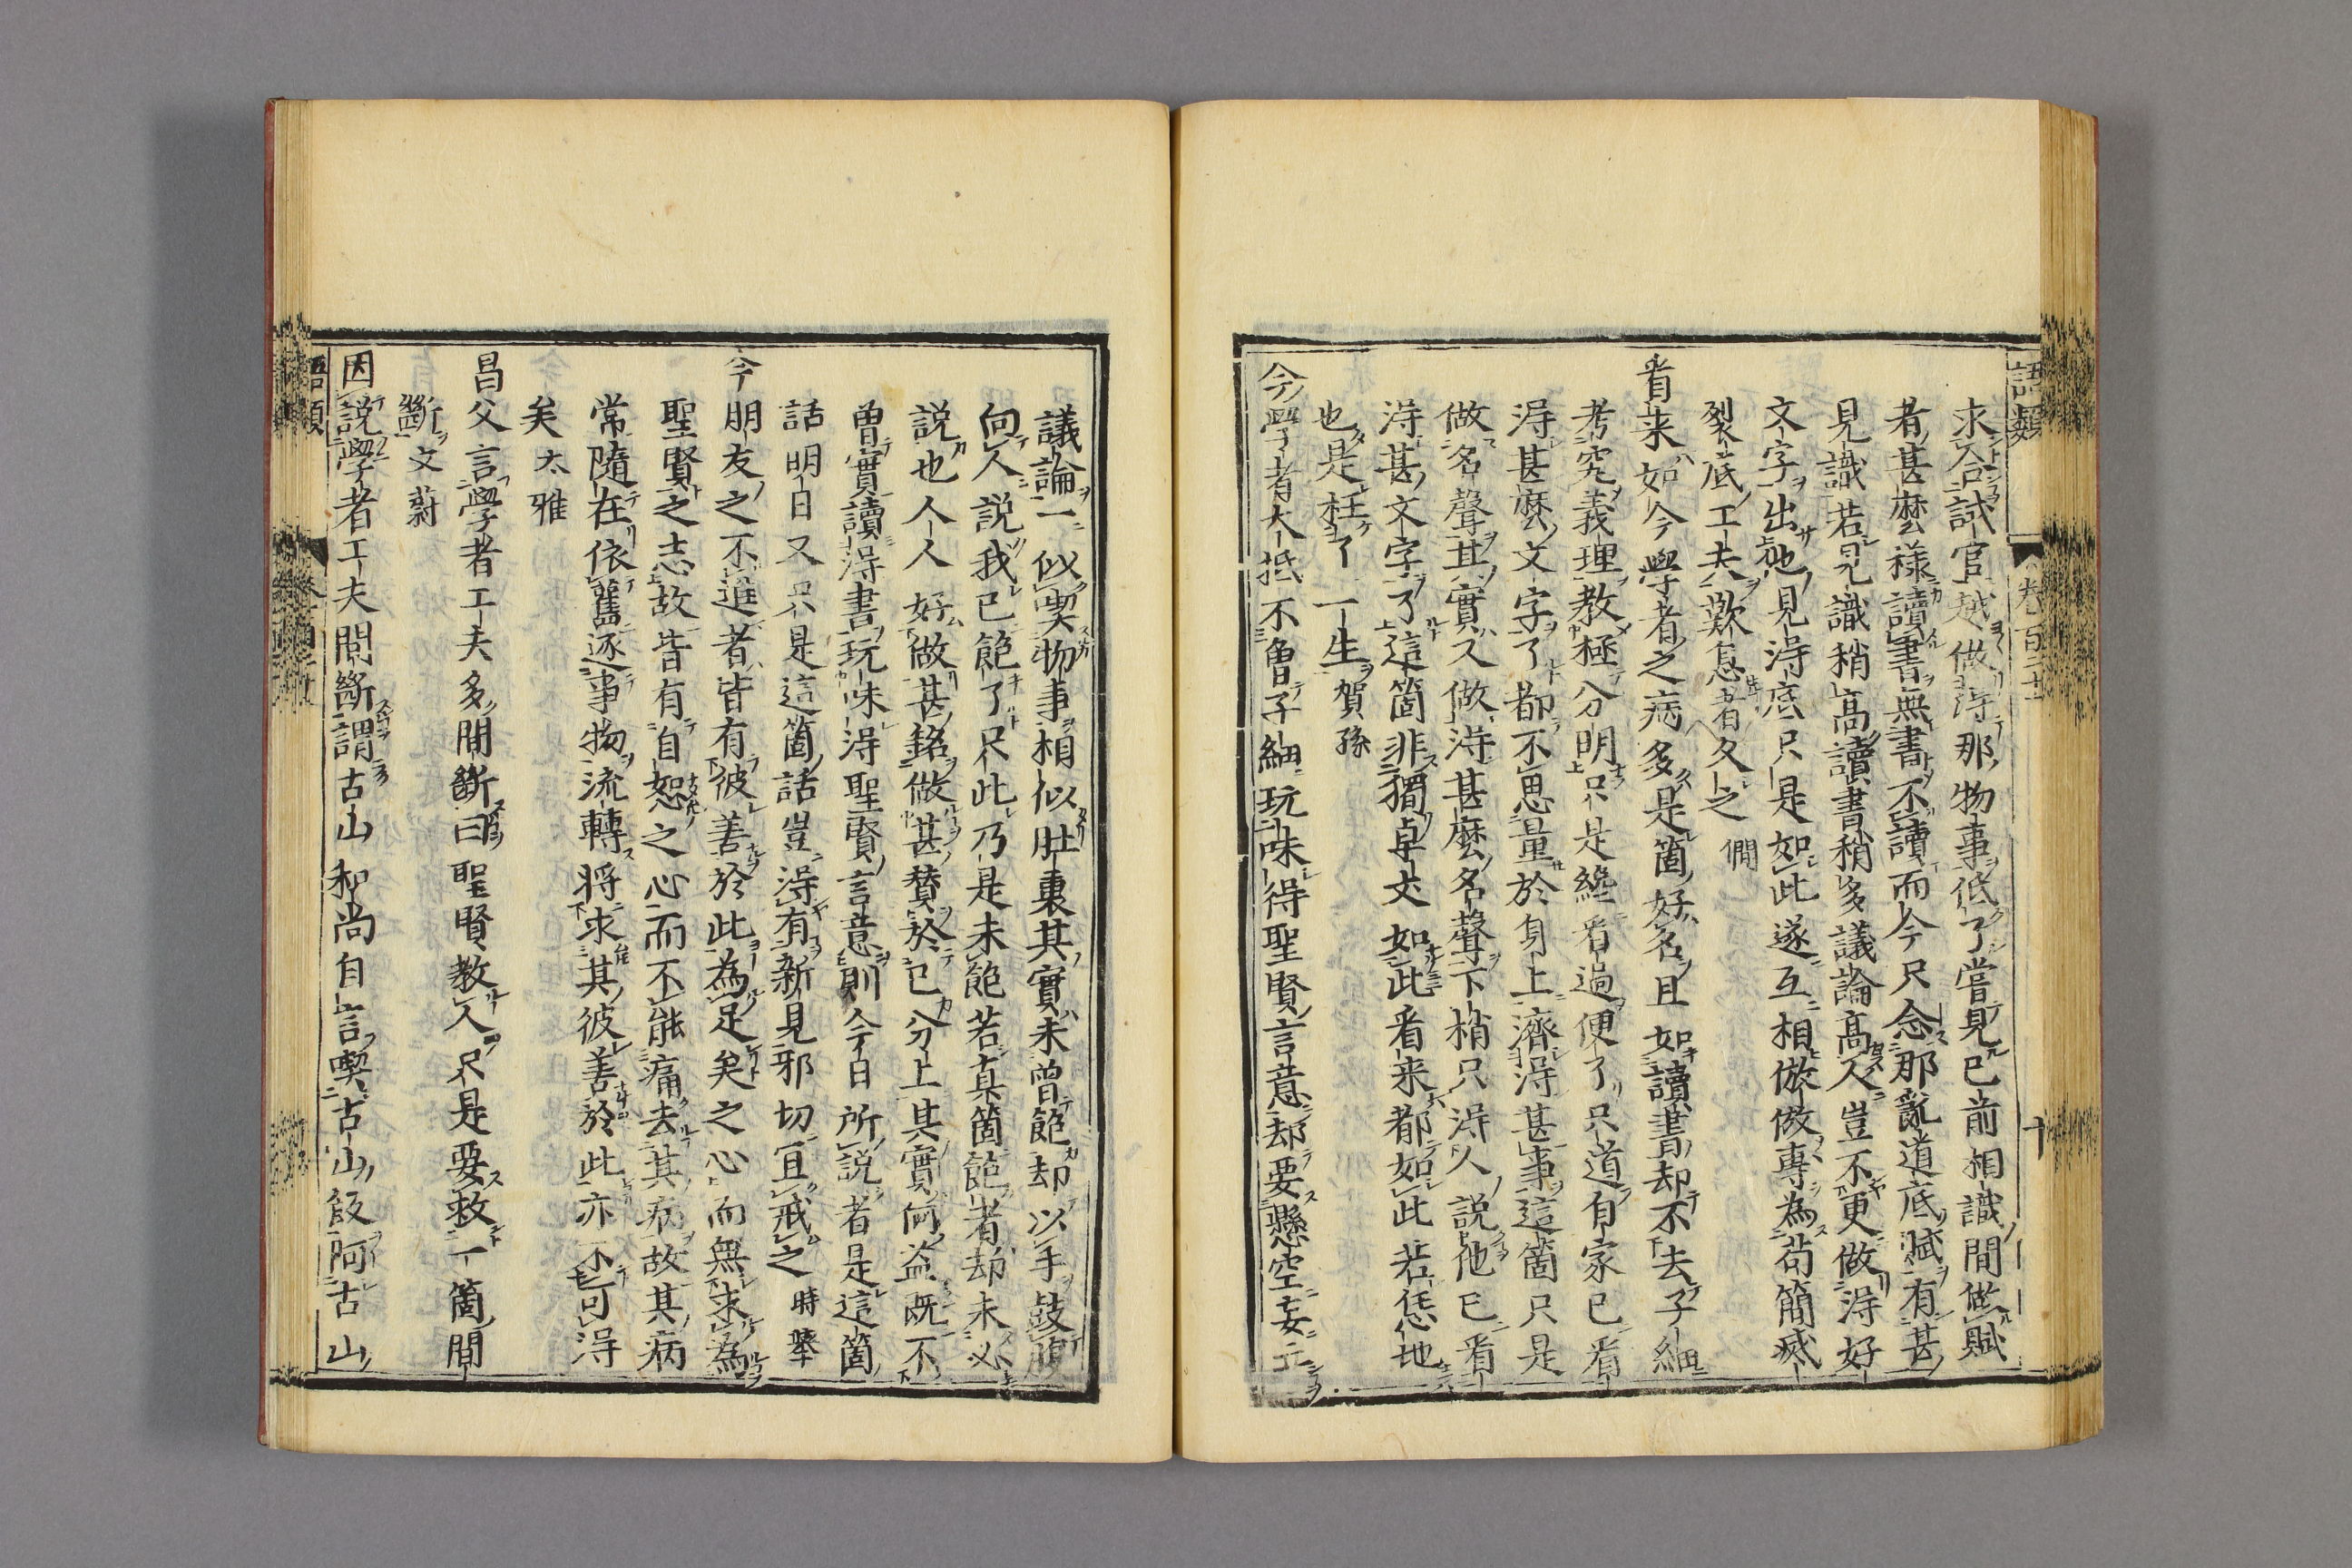 語類
卷百二十一
十
求合試官越做得那物事低了嘗見已前相識間做賦
者甚麼樣讀書無書不讀而今只念那亂道底賦有甚
見識若見識稍高讀書稍多議論高人豈不更做得好
文字出他見得底只是如此遂互相倣傚專為苟簡滅
裂底工夫歎息者久之 僩
看来如今學者之病多是箇好名且如讀書却不去子細
考究義理教極分明只是纔看過便了只道自家已看
得甚麼文字了都不思量於身上濟得甚事這箇只是
做名聲其實又做得甚麼名聲下梢只得人說他已看
得甚文字了這箇非獨卓丈如此看来都如此若恁地
也是枉了一生 賀孫
今學者大抵不曾子細玩味得聖賢言意却要懸空妄立
議論一似喫物事相似肚裏其實未曾飽却以手鼓腹
向人說我已飽了只此乃是未飽若真箇飽者却未必
說也人人好做甚銘做甚贊於已分上其實何益既不
曾實讀得書玩味得聖賢言意則今日所說者是這箇
話明日又只是這箇話豈得有新見邪切宜戒之 時舉
今朋友之不進者皆有彼善於此為足矣之心而無求為
聖賢之志故皆有自恕之心而不能痛去其病故其病
常隨在依舊逐事物流轉將求其彼善於此亦不可得
矣 太雅
昌父言學者工夫多間斷曰聖賢教人只是要救一箇間
斷 文蔚
因說學者工夫間斷謂古山和尚自言喫古山飯阿古山
語類